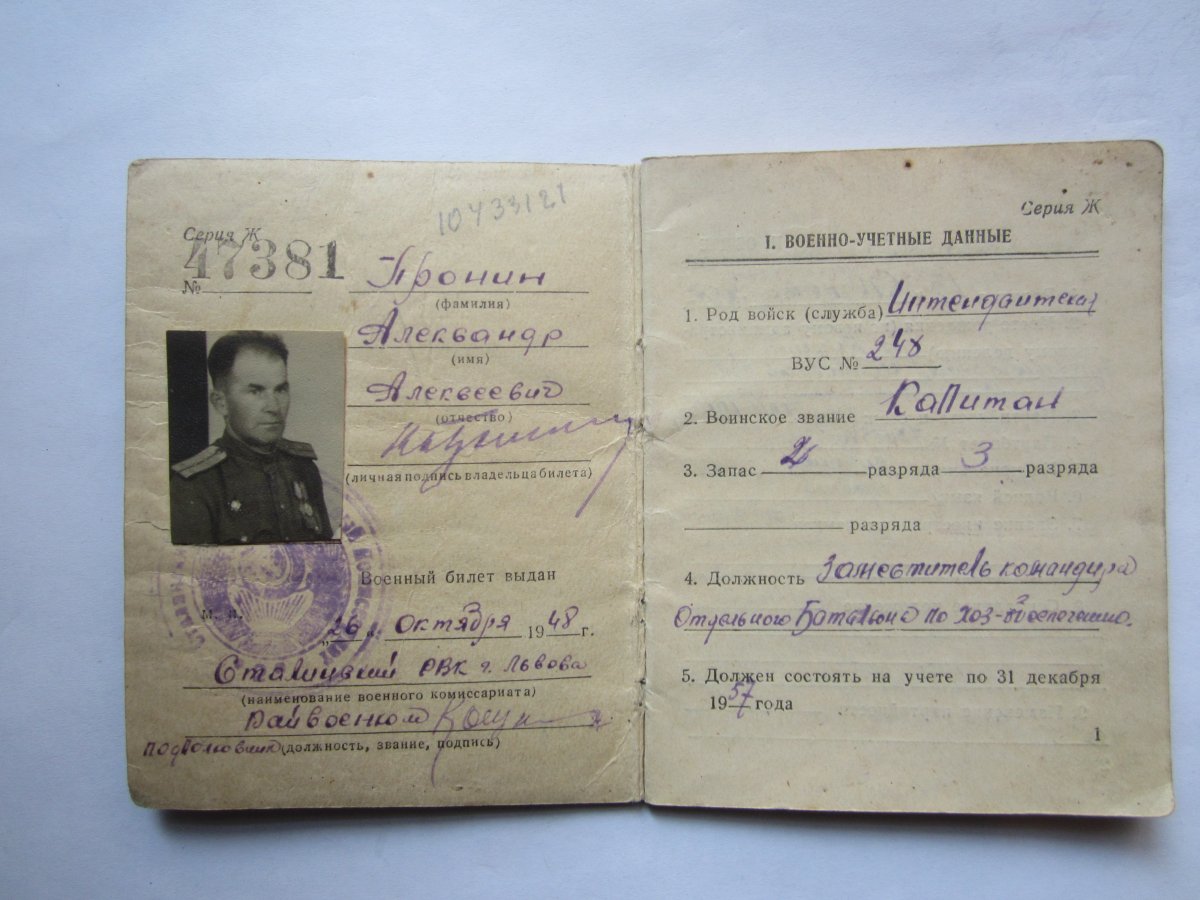 10433121
Серия Ж
№ 47381
Пронин
(фамилия)
Александр
(имя)
Алексеевич
(отчество)
(личная подпись владельца билета)
Военный билет выдан
М. П.
„26“ Октября 1948 г.
Сталинский РВК г. Львова
(наименование военного комиссариата)
Райвоенком
подполковник (должность, звание, подпись)
Серия Ж
I. ВОЕННО-УЧЕТНЫЕ ДАННЫЕ
1. Род войск (служба) Интендантская
ВУС № 248
2. Воинское звание Капитан
3. Запас 2 разряда 3 разряда
разряда
4. Должность Заместитель командира
Отдельного Батальона по Хоз-
5. Должен состоять на учете по 31 декабря
1957 года
1